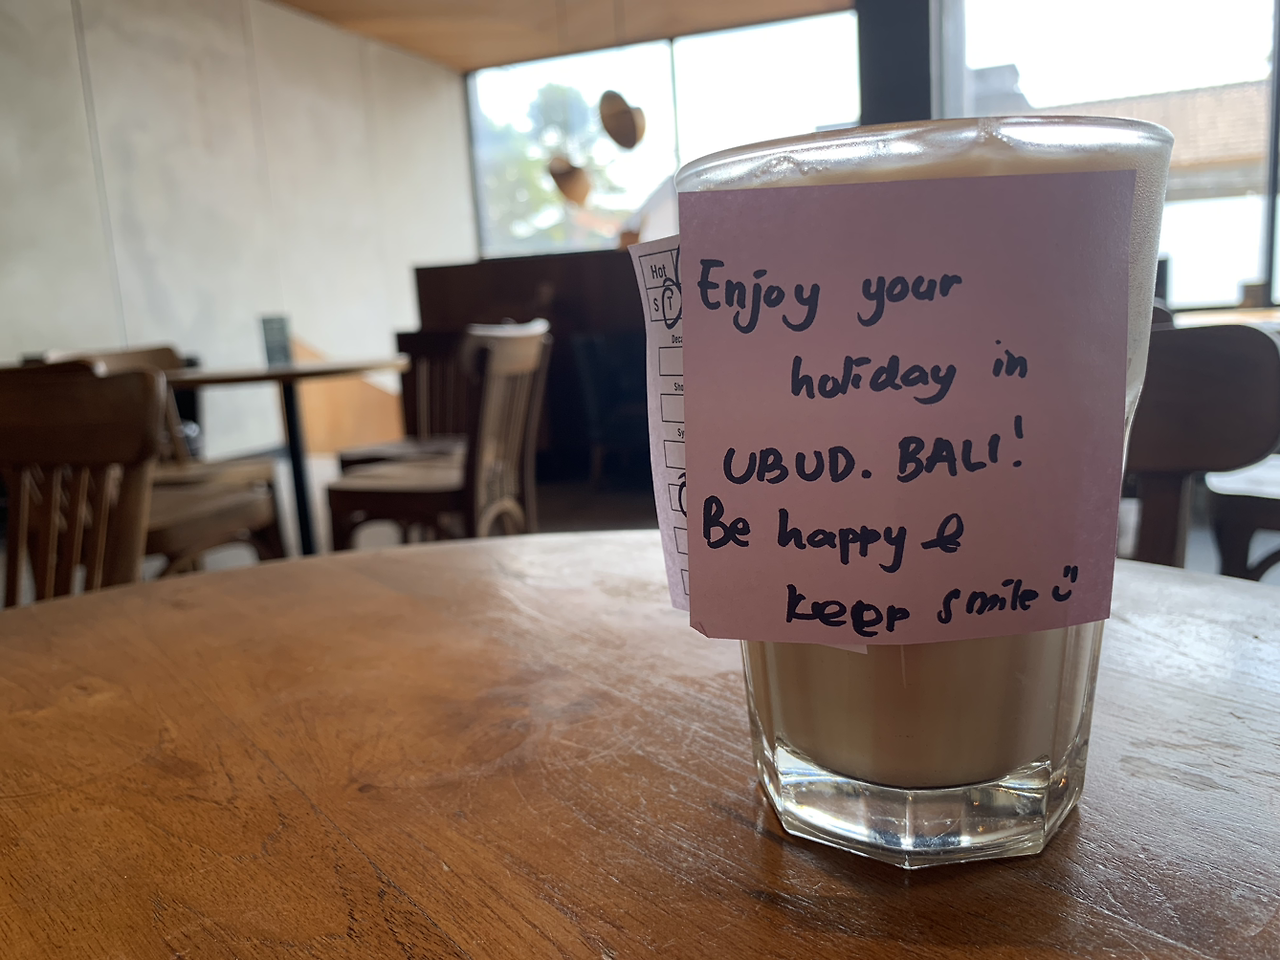 Hot
S T
Deca
Sho
Sy
Enjoy your
holiday in
UBUD. BALI!
Be happy &
keep smile ü